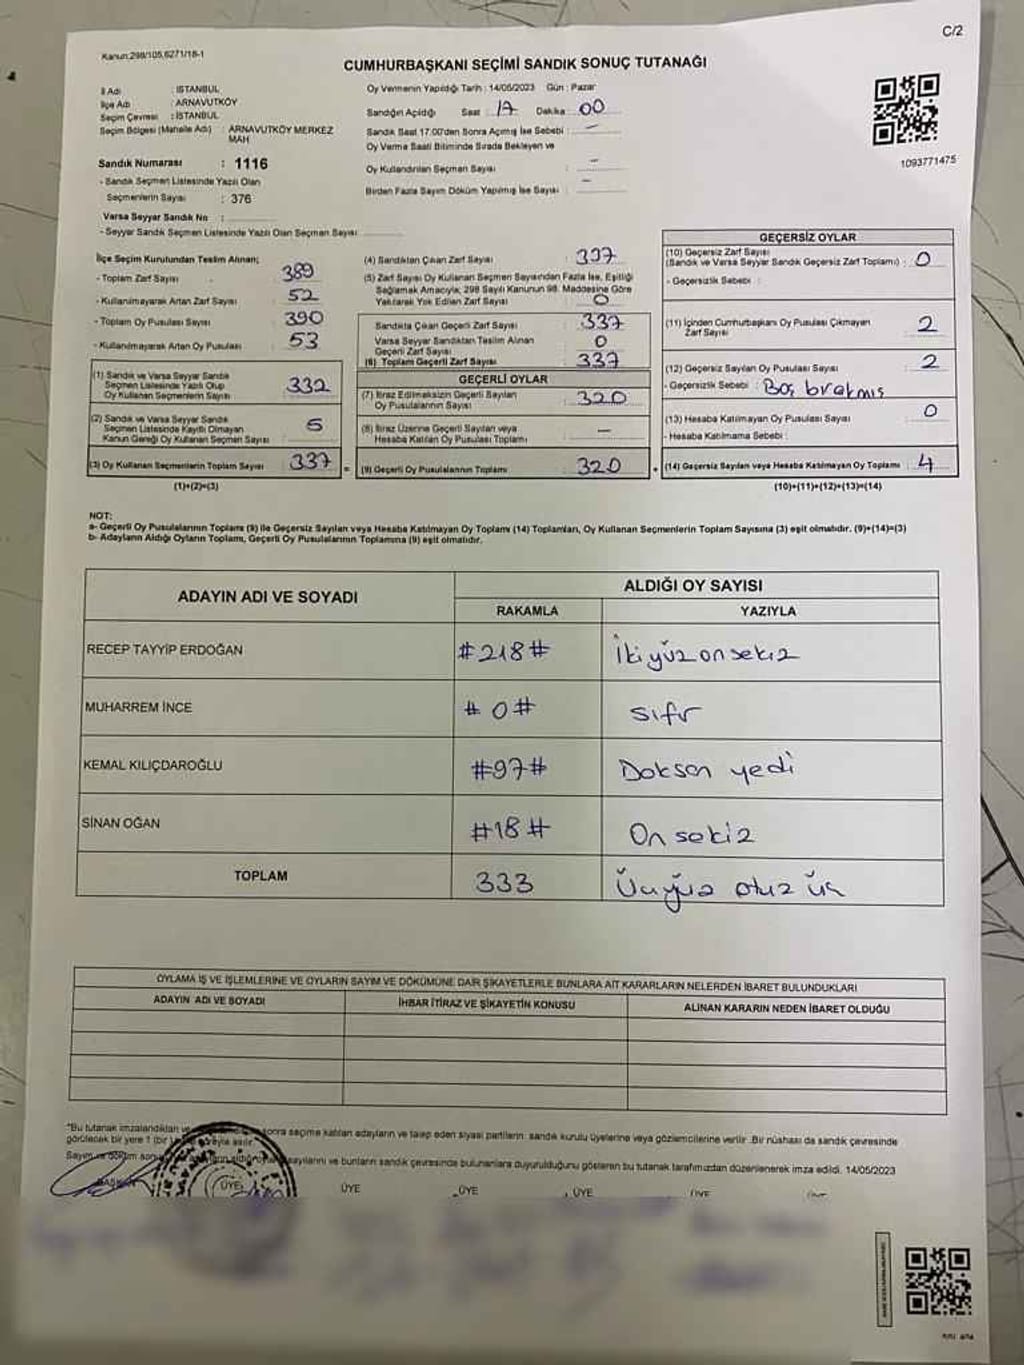 C/2
Kanun;298/105,6271/18-1
CUMHURBAŞKANI SEÇİMİ SANDIK SONUÇ TUTANAĞI
İl Adı : İSTANBUL
İlçe Adı : ARNAVUTKÖY
Seçim Çevresi : İSTANBUL
Seçim Bölgesi (Mahalle Adı) : ARNAVUTKÖY MERKEZ
MAH
Sandık Numarası : 1116
- Sandık Seçmen Listesinde Yazılı Olan
Seçmenlerin Sayısı : 376
Varsa Seyyar Sandık No :
- Seyyar Sandık Seçmen Listesinde Yazılı Olan Seçmen Sayısı:
Oy Vermenin Yapıldığı Tarih : 14/05/2023 Gün : Pazar
Sandığın Açıldığı Saat : 17 Dakika : 00
Sandık Saat 17:00'den Sonra Açılmış İse Sebebi : -
Oy Verme Saati Bitiminde Sırada Bekleyen ve
Oy Kullandırılan Seçmen Sayısı : -
Birden Fazla Sayım Döküm Yapılmış İse Sayısı : -
1093771475
İlçe Seçim Kurulundan Teslim Alınan;
- Toplam Zarf Sayısı : 389
- Kullanılmayarak Artan Zarf Sayısı : 52
- Toplam Oy Pusulası Sayısı : 390
- Kullanılmayarak Artan Oy Pusulası : 53
(1) Sandık ve Varsa Seyyar Sandık
Seçmen Listesinde Yazılı Olup
Oy Kullanan Seçmenlerin Sayısı : 332
(2) Sandık ve Varsa Seyyar Sandık
Seçmen Listesinde Kayıtlı Olmayan
Kanun Gereği Oy Kullanan Seçmen Sayısı : 5
(3) Oy Kullanan Seçmenlerin Toplam Sayısı : 337 =
(1)+(2)=(3)
(4) Sandıktan Çıkan Zarf Sayısı : 337
(5) Zarf Sayısı Oy Kullanan Seçmen Sayısından Fazla İse, Eşitliği
Sağlamak Amacıyla; 298 Sayılı Kanunun 98. Maddesine Göre
Yakılarak Yok Edilen Zarf Sayısı : 0
Sandıkta Çıkan Geçerli Zarf Sayısı : 337
Varsa Seyyar Sandıktan Teslim Alınan
Geçerli Zarf Sayısı : 0
(6) Toplam Geçerli Zarf Sayısı : 337
GEÇERLİ OYLAR
(7) İtiraz Edilmeksizin Geçerli Sayılan
Oy Pusulalarının Sayısı : 320
(8) İtiraz Üzerine Geçerli Sayılan veya
Hesaba Katılan Oy Pusulaları Toplamı : —
(9) Geçerli Oy Pusulalarının Toplamı : 320 +
GEÇERSİZ OYLAR
(10) Geçersiz Zarf Sayısı
(Sandık ve Varsa Seyyar Sandık Geçersiz Zarf Toplamı) : 0
- Geçersizlik Sebebi :
(11) İçinden Cumhurbaşkanı Oy Pusulası Çıkmayan
Zarf Sayısı : 2
(12) Geçersiz Sayılan Oy Pusulası Sayısı : 2
- Geçersizlik Sebebi : Boş bırakmış
(13) Hesaba Katılmayan Oy Pusulası Sayısı : 0
- Hesaba Katılmama Sebebi :
(14) Geçersiz Sayılan veya Hesaba Katılmayan Oy Toplamı : 4
(10)+(11)+(12)+(13)=(14)
NOT:
a- Geçerli Oy Pusulalarının Toplamı (9) ile Geçersiz Sayılan veya Hesaba Katılmayan Oy Toplamı (14) Toplamları, Oy Kullanan Seçmenlerin Toplam Sayısına (3) eşit olmalıdır. (9)+(14)=(3)
b- Adayların Aldığı Oyların Toplamı, Geçerli Oy Pusulalarının Toplamına (9) eşit olmalıdır.
ADAYIN ADI VE SOYADI ALDIĞI OY SAYISI
RAKAMLA YAZIYLA
RECEP TAYYİP ERDOĞAN #218# İkiyüzonsekiz
MUHARREM İNCE #0# sıfır
KEMAL KILIÇDAROĞLU #97# Doksan yedi
SİNAN OĞAN #18# On sekiz
TOPLAM 333 Üçyüz otuz üç
OYLAMA İŞ VE İŞLEMLERİNE VE OYLARIN SAYIM VE DÖKÜMÜNE DAİR ŞİKAYETLERLE BUNLARA AİT KARARLARIN NELERDEN İBARET BULUNDUKLARI
ADAYIN ADI VE SOYADI İHBAR İTİRAZ VE ŞİKAYETİN KONUSU ALINAN KARARIN NEDEN İBARET OLDUĞU
"Bu tutanak imzalandıktan ve sonra seçime katılan adayların ve talep eden siyasi partilerin sandık kurulu üyelerine veya gözlemcilerine verilir. Bir nüshası da sandık çevresinde
görülecek bir yere 1 (bir) süreyle asılır.
Sayım ve döküm sayılarını ve bunların sandık çevresinde bulunanlara duyurulduğunu gösteren bu tutanak tarafımızdan düzenlenerek imza edildi. 14/05/2023
BAŞKAN ÜYE ÜYE ÜYE ÜYE ÜYE